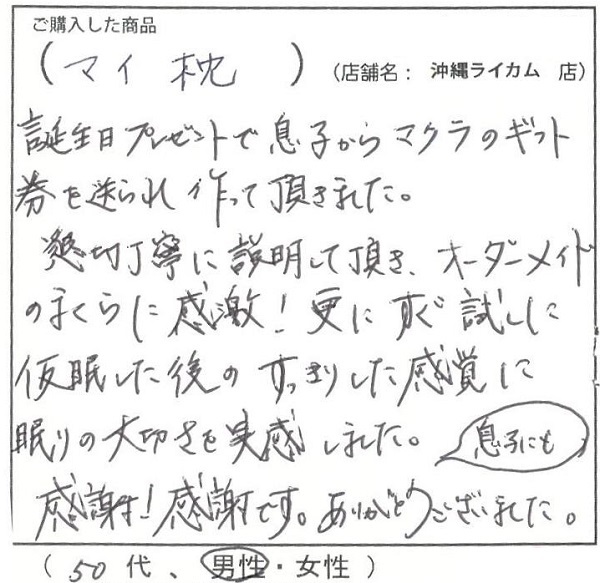 ご購入した商品
(マイ枕) (店舗名: 沖縄ライカム 店)
誕生日プレゼントで息子からマクラのギフト
券を送られ作って頂きました。
懇切丁寧に説明して頂き、オーダーメイド
のまくらに感激!更にすぐ試しに
仮眠した後のすっきりした感覚に
眠りの大切さを実感しました。
息子にも
感謝!感謝です。ありがとうございました。
(50代、男性・女性)